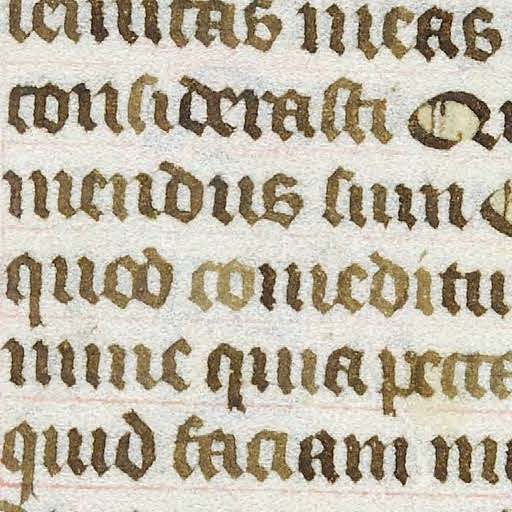 semitas meas
considerasti
mendus sum
quod comeditu
nunc quia pecca
quid faciam